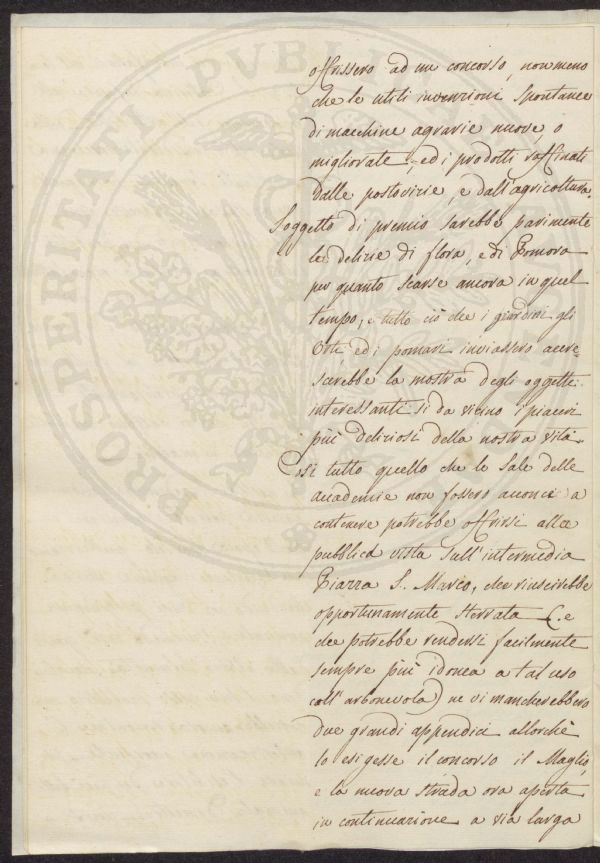 PROSPERITATI PUBLICAE
offrissero ad un concorso, nonmeno
che le utili invenzioni spontanee
di macchine agrarie nuove, o
migliorate, ed i prodotti raffinati
dalle pastorizie, e dall'agricoltura.
Soggetto di premio sarebbe parimente
le delizie di flora, e di Pomona
per quanto scarse ancora in quel
tempo, e tutto ciò che i giardini gli
Orti, ed i pomari inviassero accre=
scerebbe la mostra degli oggetti
interessanti si da vicino i piaceri
più deliziosi della nostra vita.
Così tutto quello che le Sale delle
accademie non fossero acconcie a
contenere potrebbe offrirsi alla
pubblica vista sull'intermedia
Piazza S. Marco, che riuscirebbe
opportunamente sterrata (e
che potrebbe rendersi facilmente
sempre più idonea a tal uso
coll' ) ne vi mancherebbero
due grandi appendici allorchè
lo esigesse il concorso il Maglio,
e la nuova strada ora aperta
in continuazione a via larga